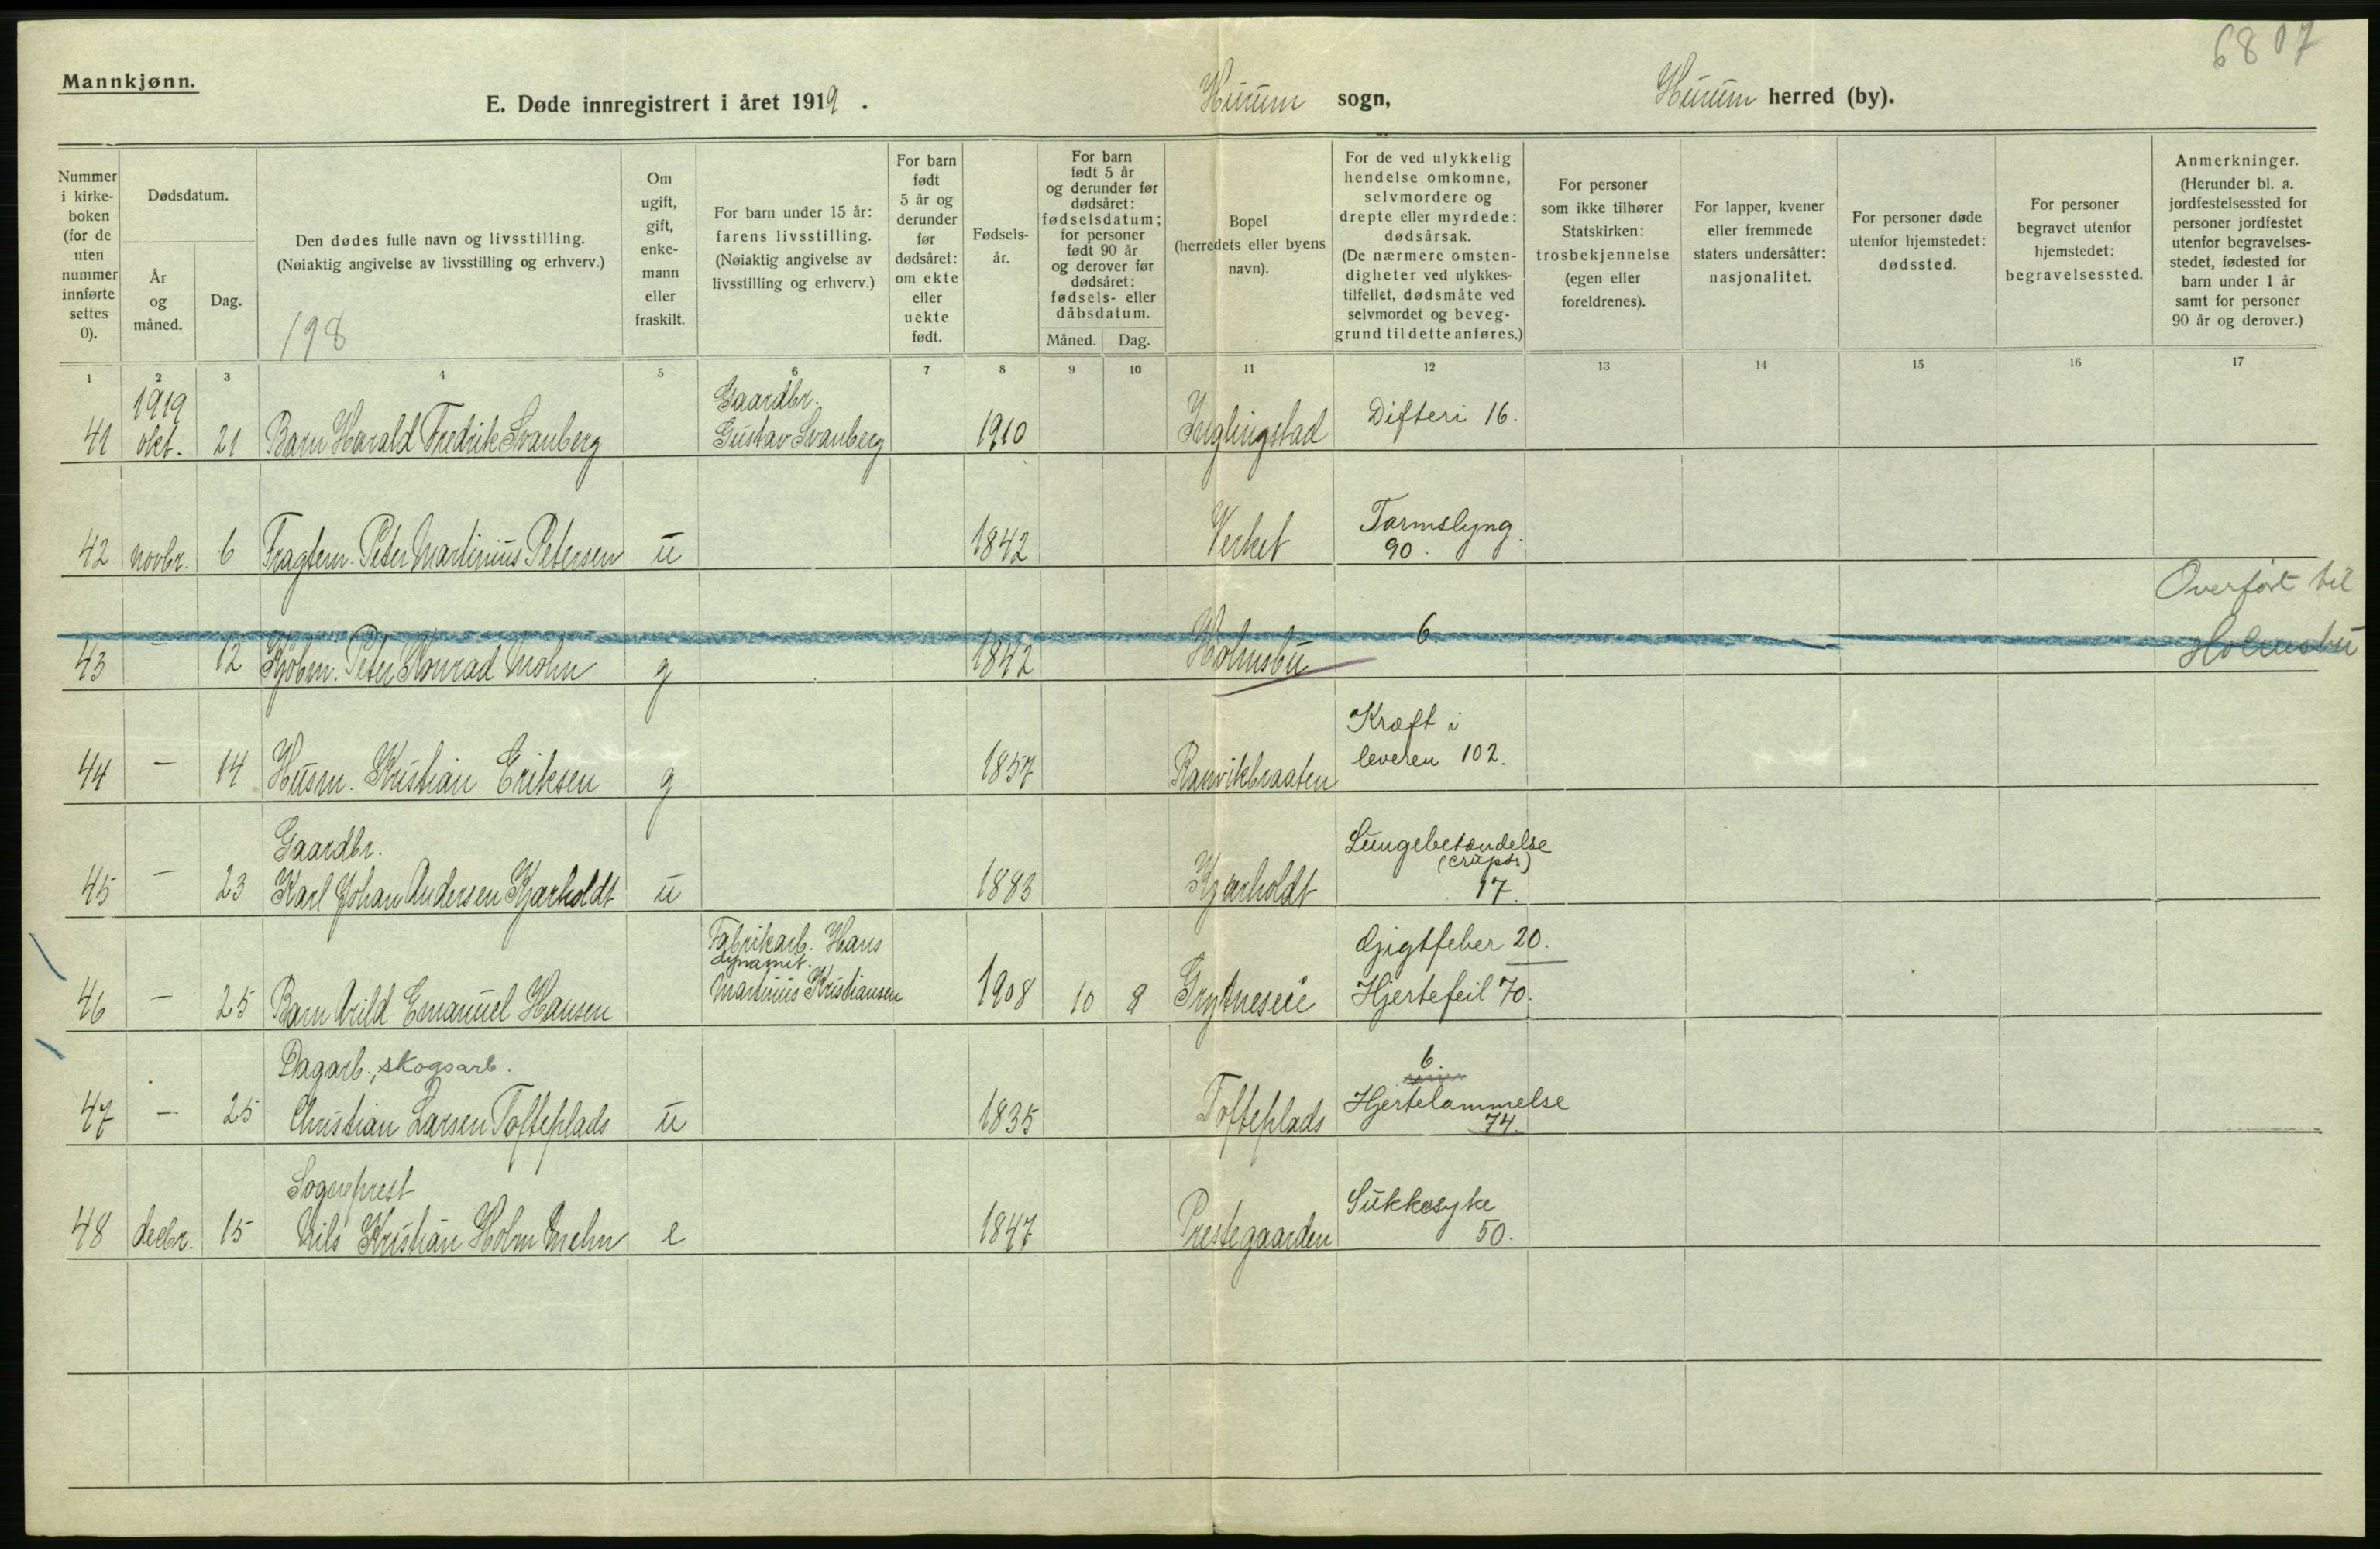 6807
Mannkjønn.
E. Døde innregistrert i året 1919 . Hurum sogn, Hurum herred (by).
Nummer i kirke- boken (for de uten nummer innførte settes 0).
Dødsdatum.
År og måned.
Dag.
Den dødes fulle navn og livsstilling.
(Nøiaktig angivelse av livsstilling og erhverv.)
198
Om ugift, gift, enke- mann eller fraskilt.
For barn under 15 år: farens livsstilling. (Nøiaktig angivelse av livsstilling og erhverv.)
For barn født 5 år og derunder før dødsåret: om ekte eller uekte født.
Fødsels- år.
For barn født 5 år og derunder før dødsåret: fødselsdatum; for personer født 90 år og derover før dødsåret: fødsels- eller dåbsdatum.
Måned. Dag.
Bopel (herredets eller byens navn).
For de ved ulykkelig hendelse omkomne, selvmordere og drepte eller myrdede: dødsårsak. (De nærmere omsten- digheter ved ulykkes- tilfellet, dødsmåte ved selvmordet og beveg- grund til dette anføres.)
For personer som ikke tilhører Statskirken: trosbekjennelse (egen eller foreldrenes).
For lapper, kvener eller fremmede staters undersåtter: nasjonalitet.
For personer døde utenfor hjemstedet: dødssted.
For personer begravet utenfor hjemstedet: begravelsessted.
Anmerkninger. (Herunder bl. a. jordfestelsessted for personer jordfestet utenfor begravelses- stedet, fødested for barn under 1 år samt for personer 90 år og derover.)
1 2 3 4 5 6 7 8 9 10 11 12 13 14 15 16 17
1919 Gaardbr.
41 okt. 21 Barn Harald Fredrik Svanberg Gustav Svanberg 1910 Difteri 16.
42 novbr. 6 Fragtem. Peter Martinius Petersen u 1842 Verket Tarmslyng
90.
Overført til
43 – 12 Kjøbm. Peter Konrad Mohn g 1842 Holmsbu 6. Holmsbu
Kræft i
44 – 14 Husm. Kristian Eriksen g 1857 Ranvikbraaten leveren 102.
Gaardbr. Lungebetændelse
(crupøs)
45 – 23 Karl Johan Andersen Kjærholdt u 1883 Kjærholdt 17.
Fabrikarb. Hans Gjigtfeber 20.
dynamit.
46 – 25 Barn Arild Emanuel Hansen Martinius Kristiansen 1908 10 8 Grytneseie Hjertefeil 70.
Dagarb., skogsarb. 6
47 – 25 Christian Larsen Tofteplads u 1835 Tofteplads Hjertelammelse
74.
Sogneprest Sukkersyke
48 decbr. 15 Nils Kristian Holm Mehn e 1847 Prestegaarden 50.